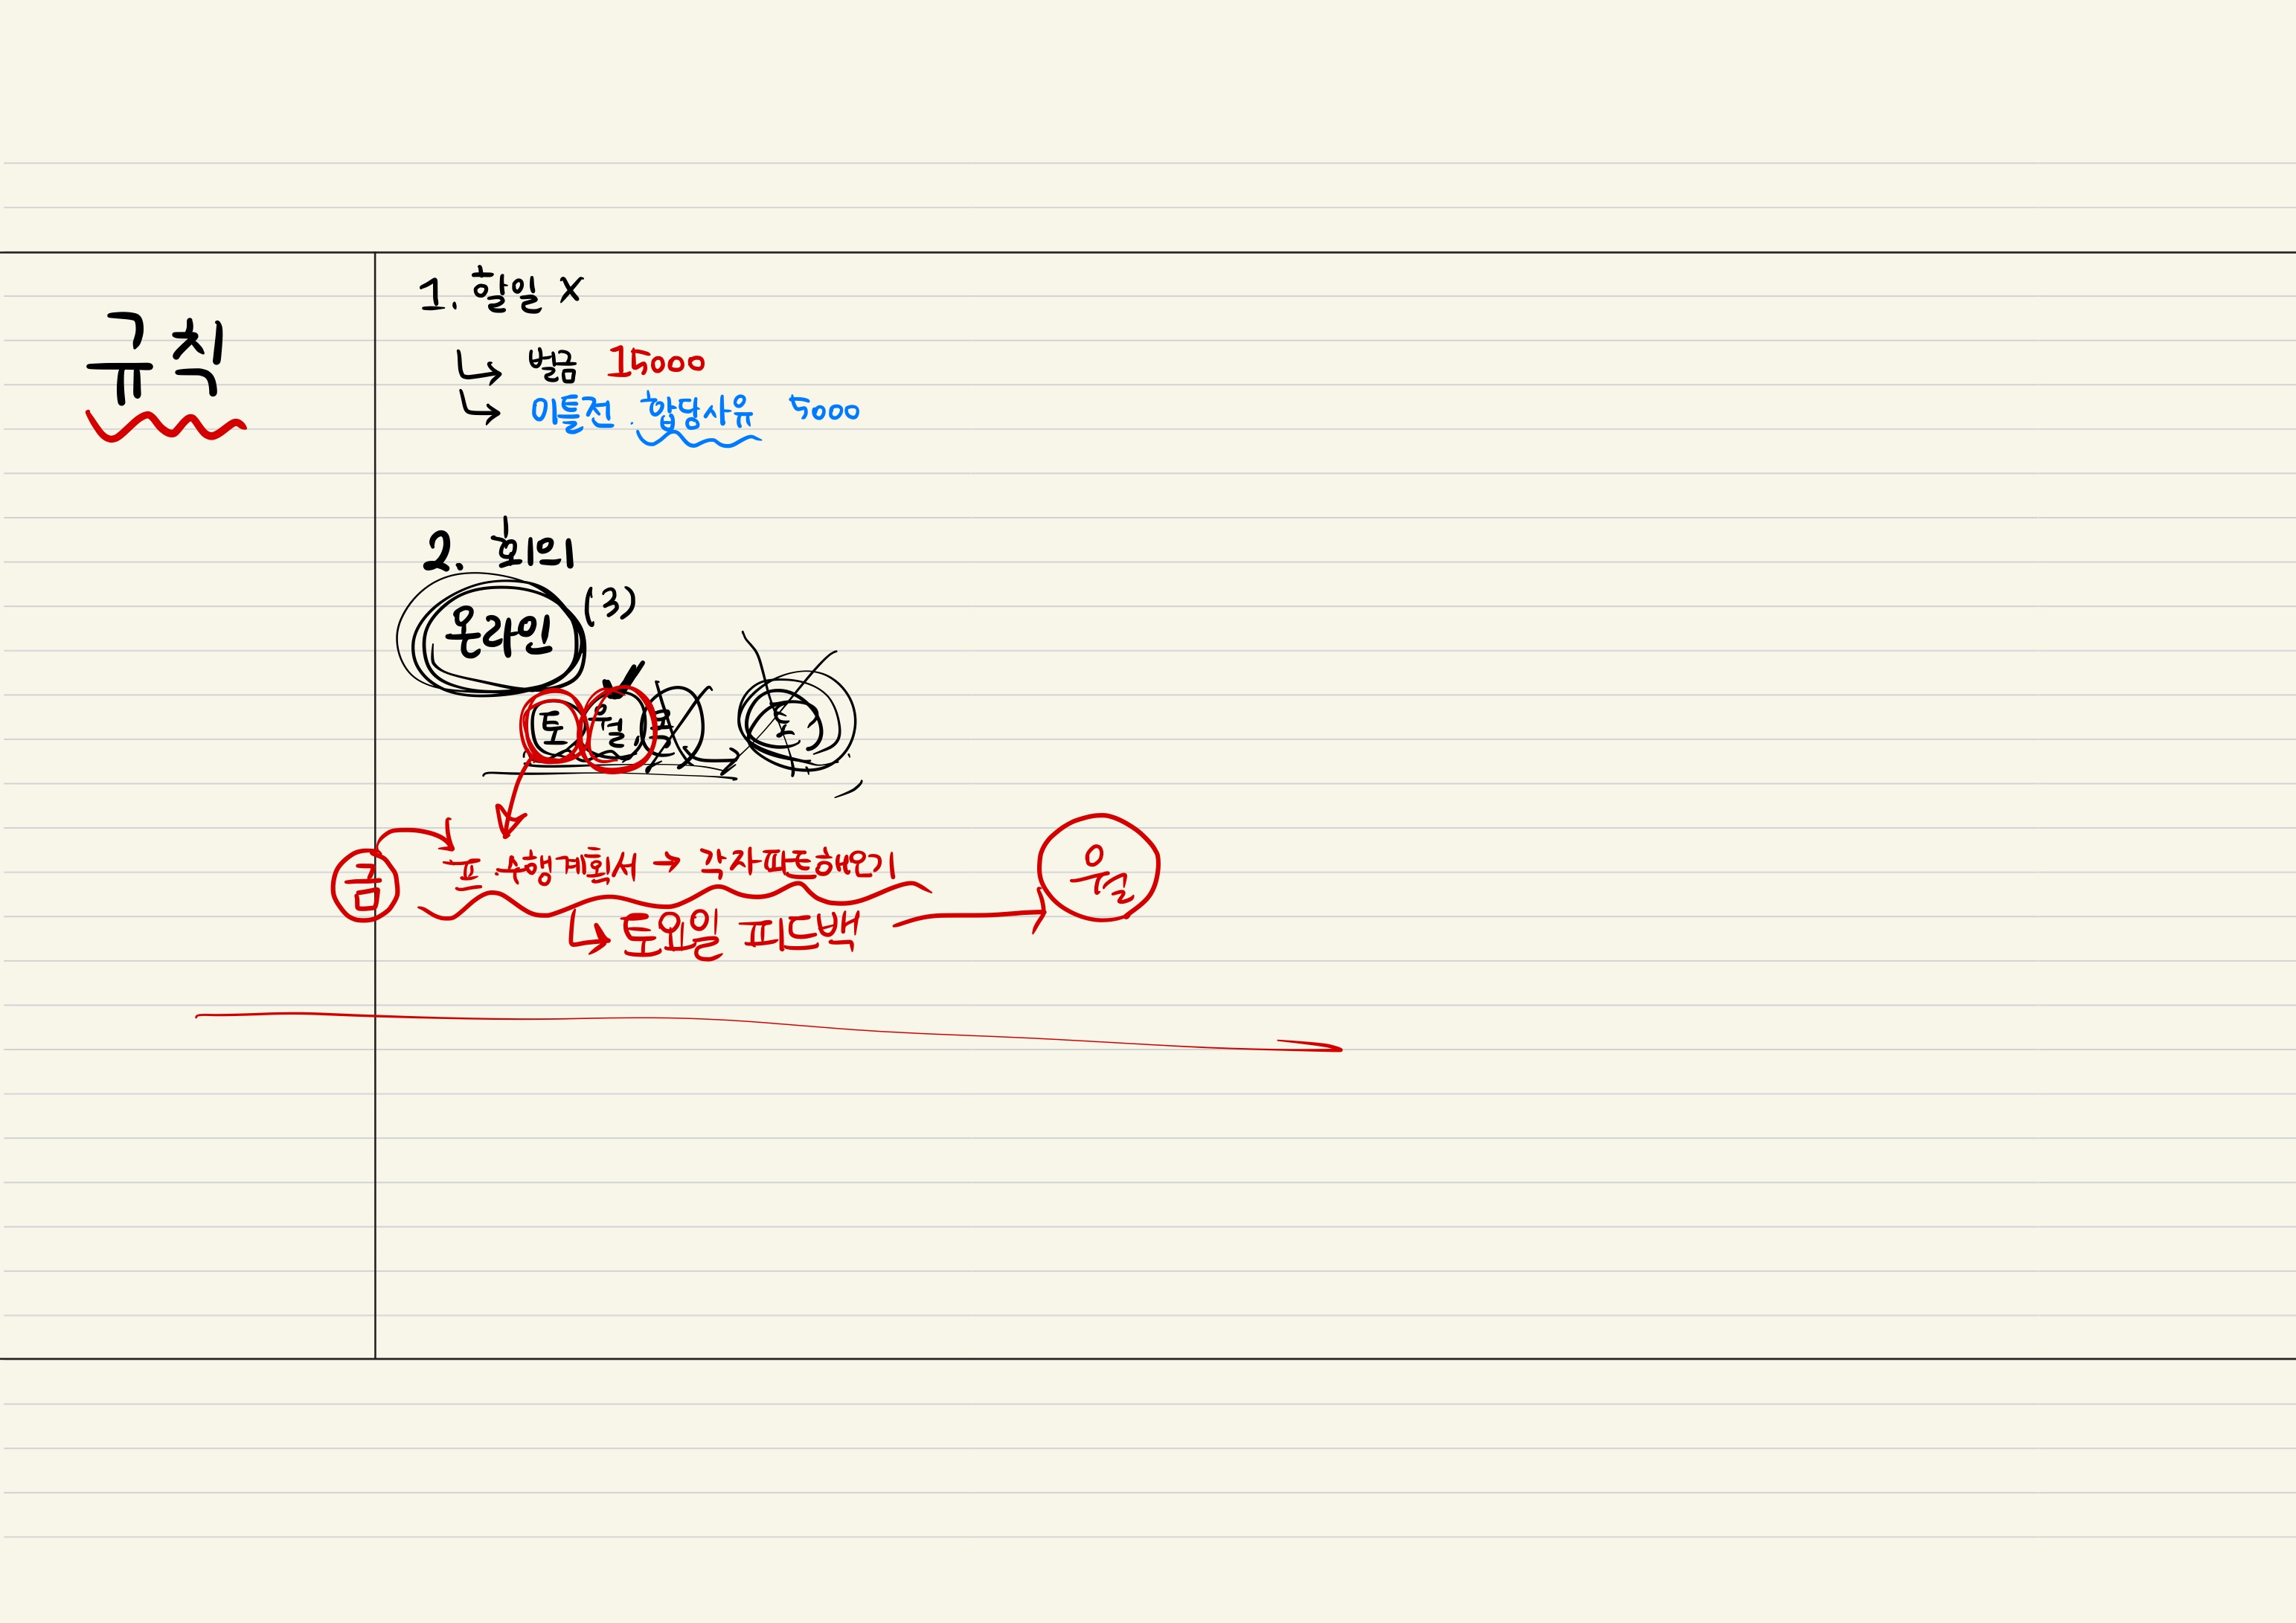 규칙
1. 할일 X
↳ 벌금 15000
↳ 이틀전 합당사유 5000
2. 회의
온라인 (3)
토 월
금 프 수행계획서 → 각자파트해오기 월
↳ 토요일 피드백